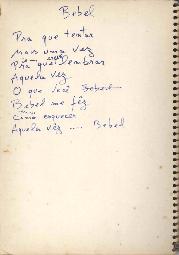 Bebel
Pra que tentar
Mais uma vez
Pra que lembrar
Aquela vez
O que você
Bebel me fêz
Como esquecer
Aquela vêz .... Bebel